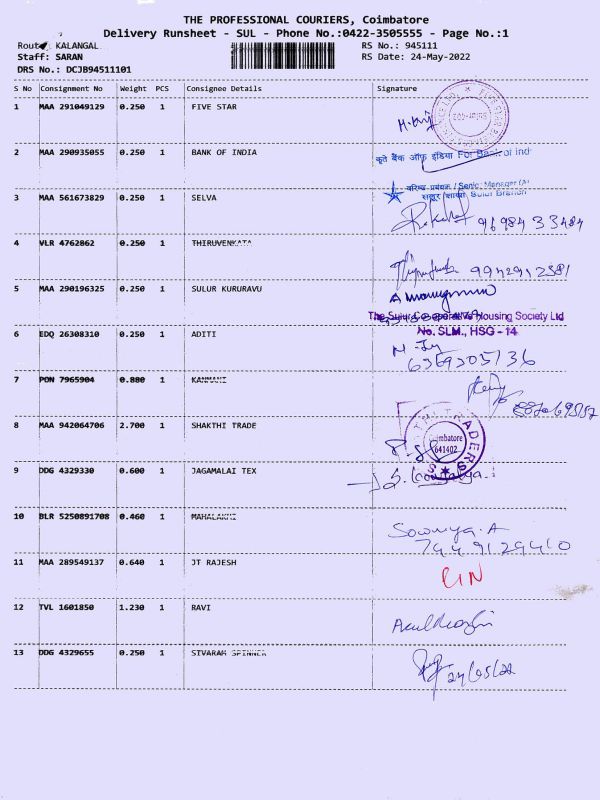 THE PROFESSIONAL COURIERS, Coimbatore
Delivery Runsheet - SUL - Phone No.:0422-3505555 - Page No.:1
Route: KALANGAL
RS No.: 945111
Staff: SARAN
RS Date: 24-May-2022
DRS No.: DCJB94511101
S No Consignment No Weight PCS Consignee Details Signature
1 MAA 291049129 0.250 1 FIVE STAR
2 MAA 290935055 0.250 1 BANK OF INDIA
कृते बैंक ऑफ इंडिया For Bank of Ind
वरिष्ठ प्रबंधक / Senior Manager
Sulur Branch
3 MAA 561673829 0.250 1 SELVA
9698433484
4 VLR 4762862 0.250 1 THIRUVENKATA
9942912581
5 MAA 290196325 0.250 1 SULUR KURURAVU
The Sulur Cooperative Housing Society Ltd
No. SLM., HSG - 14
6 EDQ 26308310 0.250 1 ADITI
6369305136
7 PON 7965904 0.880 1 KANMANI
8 MAA 942064706 2.700 1 SHAKTHI TRADE
TRADERS
Coimbatore
641402
9 DDG 4329330 0.600 1 JAGAMALAI TEX
10 BLR 5250891708 0.460 1 MAHALAKMI
Sowmya. A
7449129410
11 MAA 289549137 0.640 1 JT RAJESH
12 TVL 1601850 1.230 1 RAVI
13 DDG 4329655 0.250 1 SIVARAM SPINNER
24/05/22